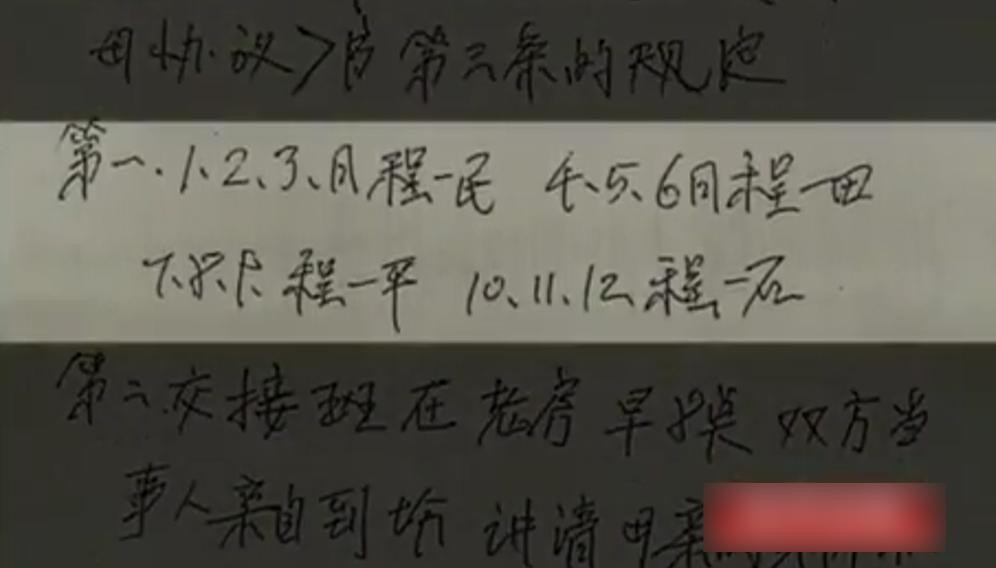 母协议>内第三条的规定
第一.1、2、3、月程一民 4、5、6月程一田
7、8、9、程一平 10、11、12、程一石
第二、交接班在老房早8点 双方当
事人亲自到场 讲清母亲的